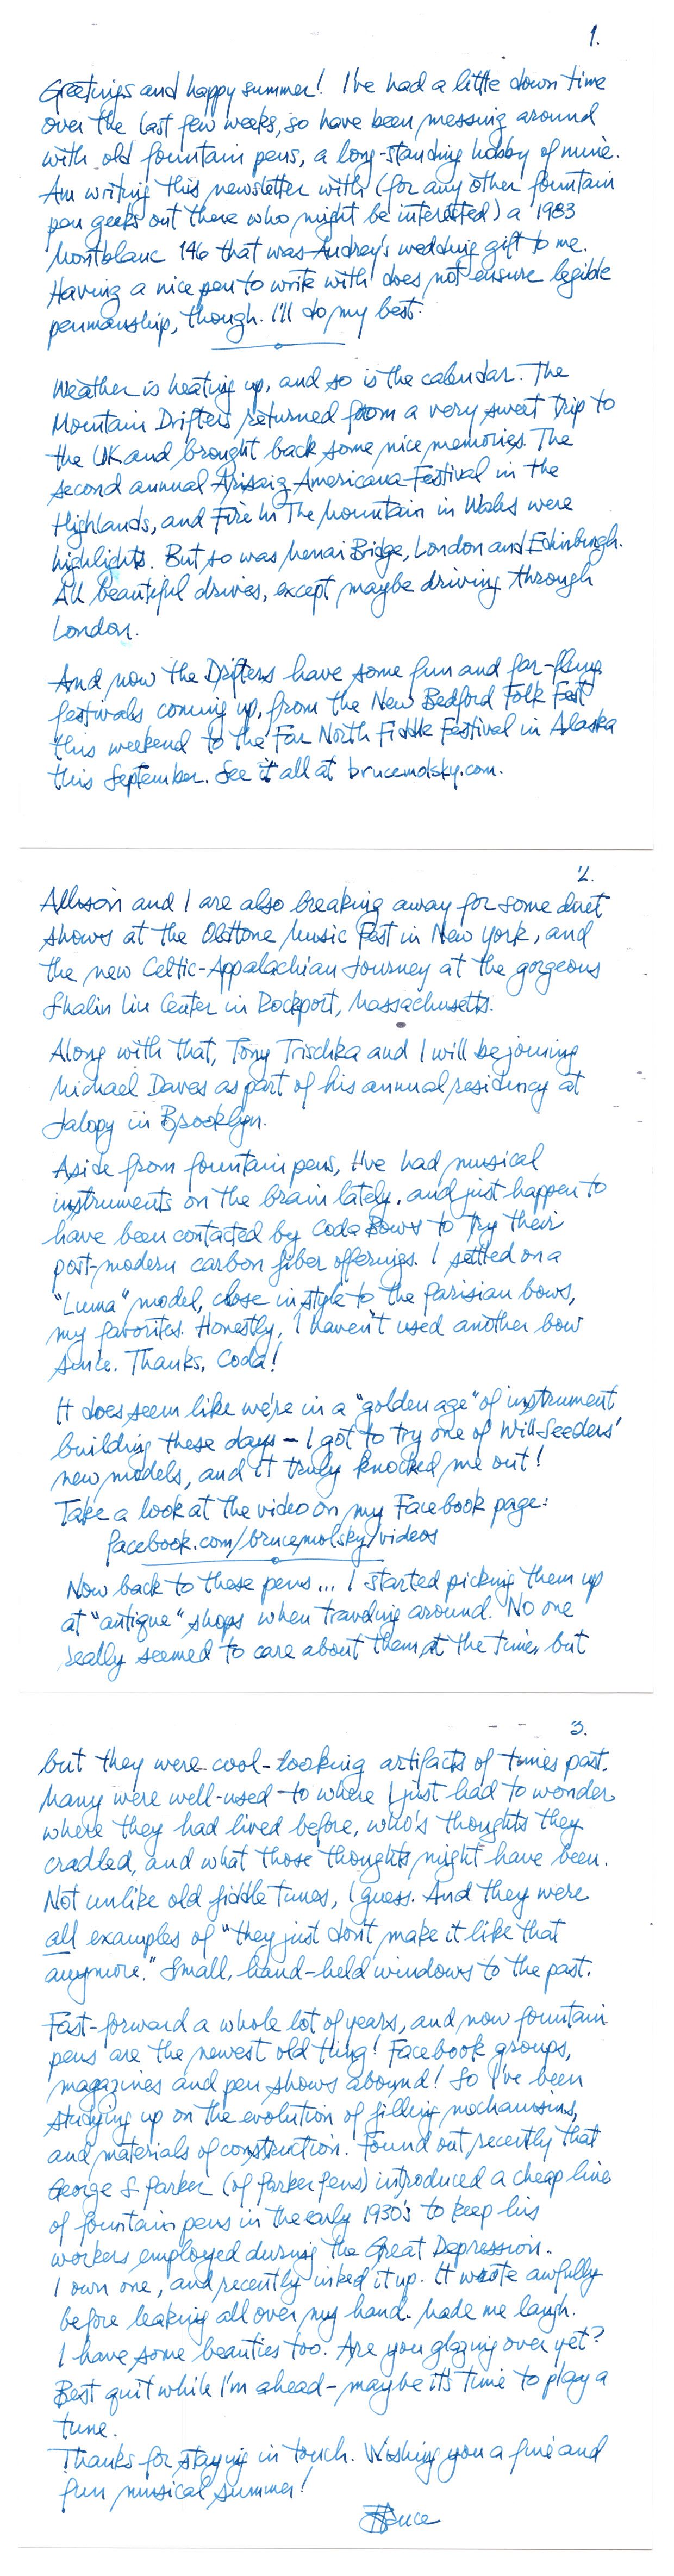 1.
Greetings and happy summer! I've had a little down time
over the last few weeks, so have been messing around
with old fountain pens, a long-standing hobby of mine.
Am writing this newsletter with (for any other fountain
pen geeks out there who might be interested) a 1983
Montblanc 146 that was Audrey's wedding gift to me.
Having a nice pen to write with does not ensure legible
penmanship, though. I'll do my best.
Weather is heating up, and so is the calendar. The
Mountain Drifters returned from a very sweet trip to
the UK and brought back some nice memories. The
second annual Arisaig Americana Festival in the
Highlands, and Fire In The Mountain in Wales were
highlights. But so was Menai Bridge, London and Edinburgh.
All beautiful drives, except maybe driving through
London.
And now the Drifters have some fun and far-flung
festivals coming up, from the New Bedford Folk Fest
this weekend to the Far North Fiddle Festival in Alaska
this September. See it all at brucemolsky.com.
2.
Allison and I are also breaking away for some duet
shows at the Oldtone Music Fest in New York, and
the new Celtic-Appalachian Journey at the gorgeous
Shalin Liu Center in Rockport, Massachusetts.
Along with that, Tony Trischka and I will be joining
Michael Daves as part of his annual residency at
Jalopy in Brooklyn.
Aside from fountain pens, I've had musical
instruments on the brain lately, and just happen to
have been contacted by Coda Bows to try their
post-modern carbon fiber offerings. I settled on a
"Luma" model, close in style to the Parisian bows,
my favorites. Honestly, I haven't used another bow
since. Thanks, Coda!
It does seem like we're in a "golden age" of instrument
building these days - I got to try one of Will Seeders'
new models, and it truly knocked me out!
Take a look at the video on my Facebook page:
facebook.com/brucemolsky/videos
Now back to these pens... I started picking them up
at "antique" shops when traveling around. No one
really seemed to care about them at the time, but
3.
but they were cool-looking artifacts of times past.
Many were well-used - to where I just had to wonder
where they had lived before, who's thoughts they
cradled, and what those thoughts might have been.
Not unlike old fiddle tunes, I guess. And they were
all examples of "they just don't make it like that
anymore." Small, hand-held windows to the past.
Fast-forward a whole lot of years, and now fountain
pens are the newest old thing! Facebook groups,
magazines and pen shows abound! So I've been
studying up on the evolution of filling mechanisms,
and materials of construction. Found out recently that
George S Parker (of Parker Pens) introduced a cheap line
of fountain pens in the early 1930's to keep his
workers employed during the Great Depression.
I own one, and recently inked it up. It wrote awfully
before leaking all over my hand. Made me laugh.
I have some beauties too. Are you glazing over yet?
Best quit while I'm ahead - maybe it's time to play a
tune.
Thanks for staying in touch. Wishing you a fine and
fun musical summer!
Bruce